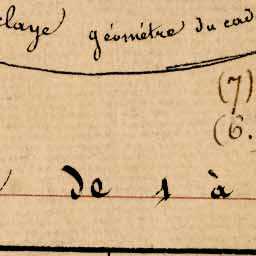 claye géométre du cad
(7)
(6.
de 1 à